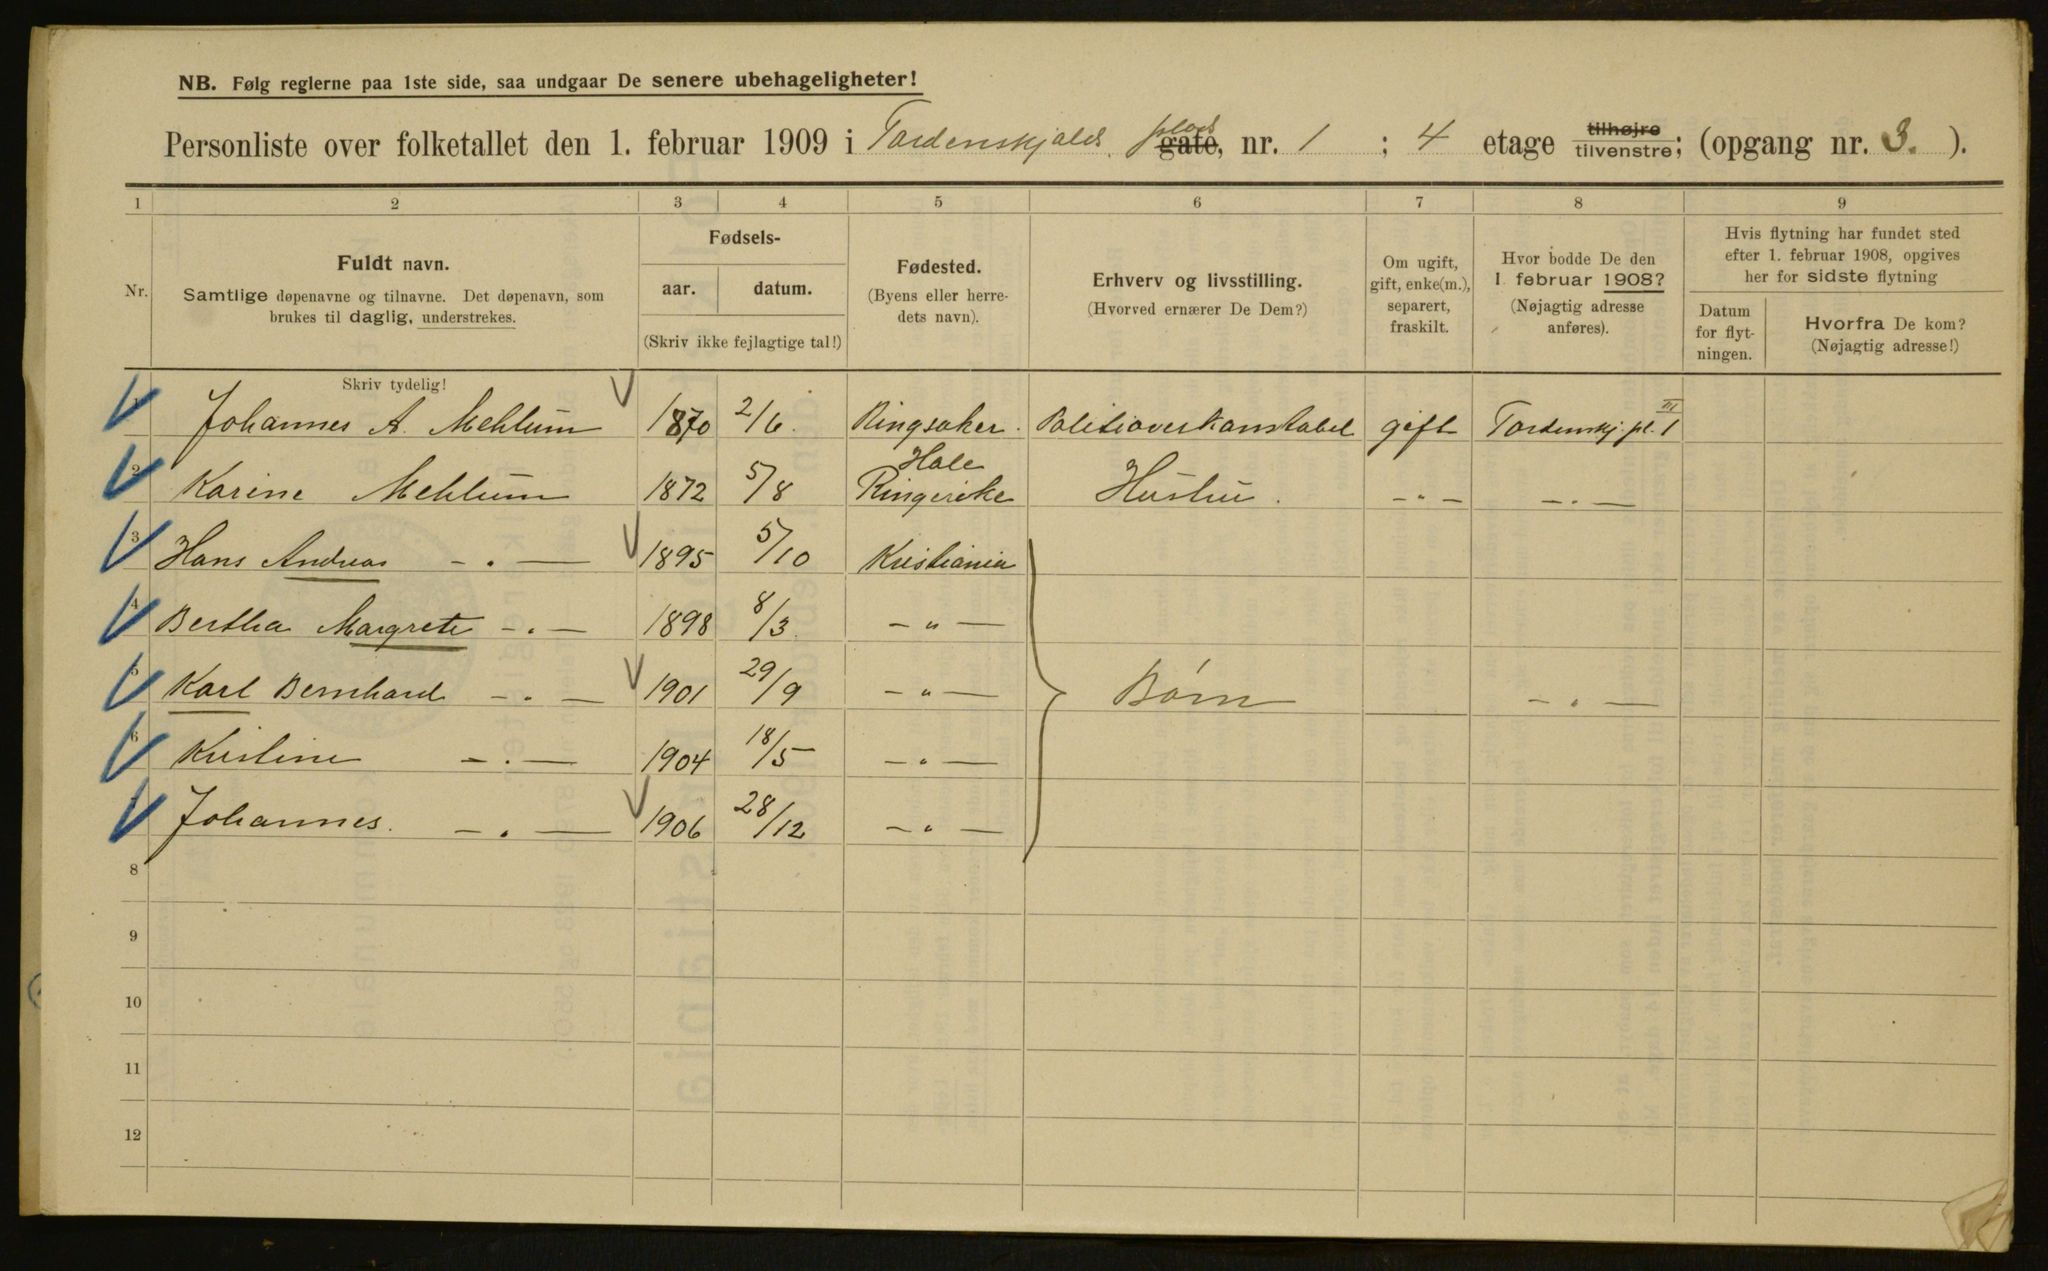 NB. Følg reglerne paa 1ste side, saa undgaar De senere ubehageligheter!
Personliste over folketallet den 1. februar 1909 i Tordenskjolds plads gate, nr. 1 ; 4 etage tilhøjre tilvenstre; (opgang nr. 3. ).
1 2 3 4 5 6 7 8 9
Nr.
Fuldt navn.
Samtlige døpenavne og tilnavne. Det døpenavn, som
brukes til daglig, understrekes.
Skriv tydelig!
Fødsels-
aar. datum.
(Skriv ikke fejlagtige tal!)
Fødested.
(Byens eller herre-
dets navn).
Erhverv og livsstilling.
(Hvorved ernærer De Dem?)
Om ugift,
gift, enke(m.),
separert,
fraskilt.
Hvor bodde De den
1. februar 1908?
(Nøjagtig adresse
anføres).
Hvis flytning har fundet sted
efter 1. februar 1908, opgives
her for sidste flytning
Datum
for flyt-
ningen.
Hvorfra De kom?
(Nøjagtig adresse!)
1 Johannes A. Mehlum 1870 2/6. Ringsaker. Politioverkonstabel gift Tordenskj. pl. 1 III
2 Karine Mehlum 1872 5/8 Hole Ringerike Hustru. - " - - " -
3 Hans Andreas - " - 1895 5/10 Kristiania
4 Bertha Margrete - " - 1898 8/3. - " -
5 Karl Bernhard - " - 1901 29/9 - " - Børn - " -
6 Kristine - " - 1904 18/5 - " -
7 Johannes. - " - 1906 28/12 - " -
8
9
10
11
12